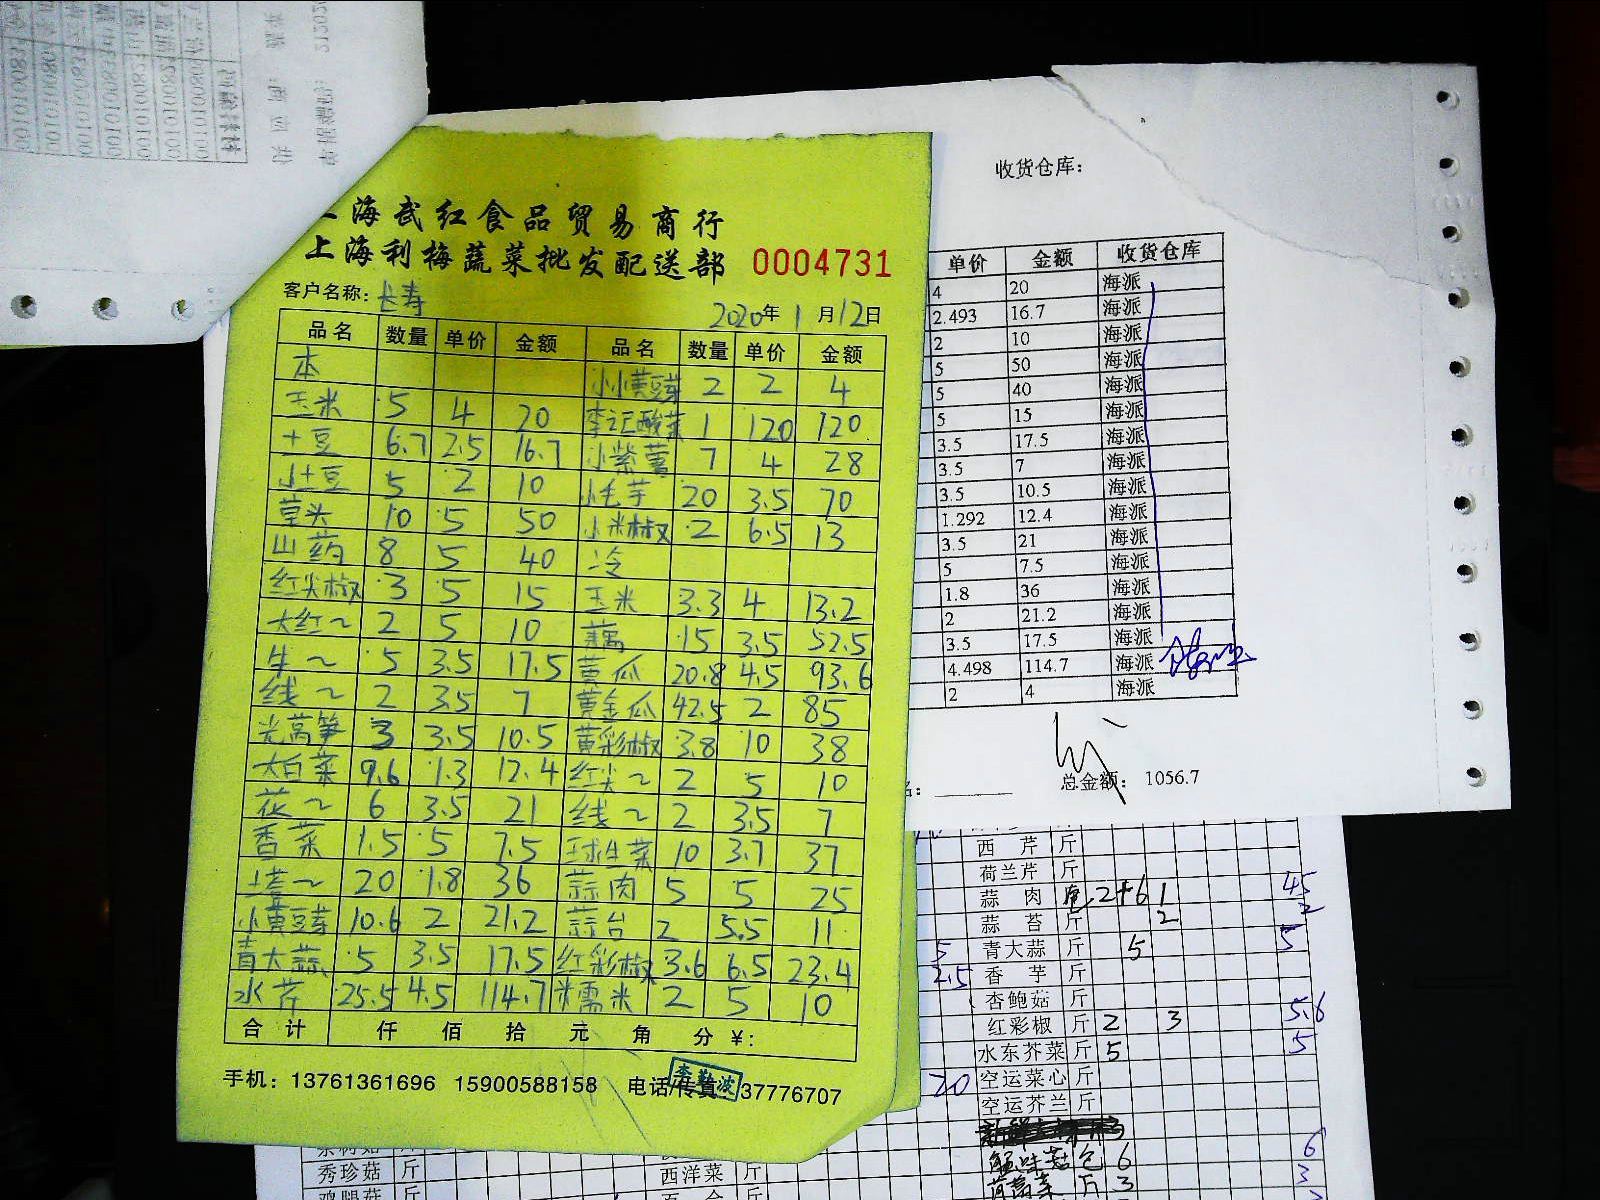 收货仓库：
单价 金额 收货仓库
4 20 海派
2.493 16.7 海派
2 10 海派
5 50 海派
5 40 海派
5 15 海派
3.5 17.5 海派
3.5 7 海派
3.5 10.5 海派
1.292 12.4 海派
3.5 21 海派
5 7.5 海派
1.8 36 海派
2 21.2 海派
3.5 17.5 海派
4.498 114.7 海派
2 4 海派
总金额： 1056.7
上海武红食品贸易商行
上海利梅蔬菜批发配送部 0004731
客户名称：长寿 2020年1月12日
品名 数量 单价 金额 品名 数量 单价 金额
本 小小黄豆芽 2 2 4
玉米 5 4 20 李记酸菜 1 120 120
土豆 6.7 2.5 16.7 小紫薯 7 4 28
小土豆 5 2 10 小毛芋 20 3.5 70
草头 10 5 50 小米椒 2 6.5 13
山药 8 5 40 冷
红尖椒 3 5 15 玉米 3.3 4 13.2
大红〜 2 5 10 藕 15 3.5 52.5
牛〜 5 3.5 17.5 黄瓜 20.8 4.5 93.6
线〜 2 3.5 7 黄金瓜 42.5 2 85
光莴笋 3 3.5 10.5 黄彩椒 3.8 10 38
大白菜 9.6 1.3 12.4 红尖〜 2 5 10
花〜 6 3.5 21 线〜 2 3.5 7
香菜 1.5 5 7.5 球生菜 10 3.7 37
塔〜 20 1.8 36 蒜肉 5 5 25
小黄豆芽 10.6 2 21.2 蒜台 2 5.5 11
青大蒜 5 3.5 17.5 红彩椒 3.6 6.5 23.4
水芹 25.5 4.5 114.7 糯米 2 5 10
合计 仟 佰 拾 元 角 分 ¥：
手机：13761361696 15900588158 电话/传真：37776707
李勤波
西芹 斤
荷兰芹 斤
蒜肉 2+6 1 45
蒜苔 斤 2 2
5 青大蒜 斤 5 5
2.5 香芋 斤
杏鲍菇 斤
红彩椒 斤 2 3 5.6
水东芥菜 斤 5 5
20 空运菜心 斤
空运芥兰 斤
蟹味菇 包 6 6
茼蒿菜 斤 3 3
秀珍菇 斤 西洋菜 斤
鸡腿菇 斤 百合 斤